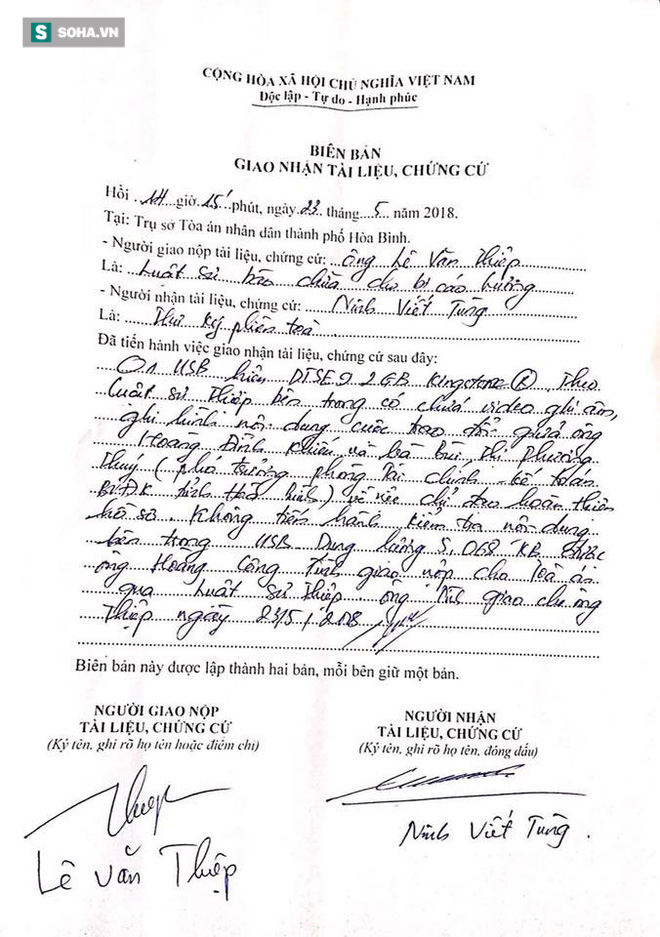 S SOHA.VN
CỘNG HÒA XÃ HỘI CHỦ NGHĨA VIỆT NAM
Độc lập - Tự do - Hạnh phúc
BIÊN BẢN
GIAO NHẬN TÀI LIỆU, CHỨNG CỨ
Hồi 14 giờ 15' phút, ngày 23 tháng 5 năm 2018.
Tại: Trụ sở Tòa án nhân dân thành phố Hòa Bình.
- Người giao nộp tài liệu, chứng cứ: Ông Lê Văn Thiệp
Là: Luật sư bào chữa cho bị cáo Lương
- Người nhận tài liệu, chứng cứ: Ninh Viết Tùng
Là: Thư ký phiên toà
Đã tiến hành việc giao nhận tài liệu, chứng cứ sau đây:
01 USB hiệu DTSE9 2GB Kingstone ® Theo
Luật sư Thiệp bên trong có chứa video ghi âm,
ghi hình nội dung cuộc trao đổi giữa ông
Hoàng Đình Khiếu và bà Bùi Thị Phương
Thuý (phó trưởng phòng Tài chính, kế toán
BVĐK tỉnh Hoà Bình) về việc chỉ đạo hoàn thiện
hồ sơ. Không tiến hành kiểm tra nội dung
bên trong USB Dung lượng 5,068 KB được
ông Hoàng Công Tình giao nộp cho Toà án
qua Luật sư Thiệp ông Tình giao cho ông
Thiệp ngày 23/5/2018
Biên bản này được lập thành hai bản, mỗi bên giữ một bản.
NGƯỜI GIAO NỘP
TÀI LIỆU, CHỨNG CỨ
(Ký tên, ghi rõ họ tên hoặc điểm chỉ)
Thiệp
Lê Văn Thiệp
NGƯỜI NHẬN
TÀI LIỆU, CHỨNG CỨ
(Ký tên, ghi rõ họ tên, đóng dấu)
Ninh Viết Tùng.